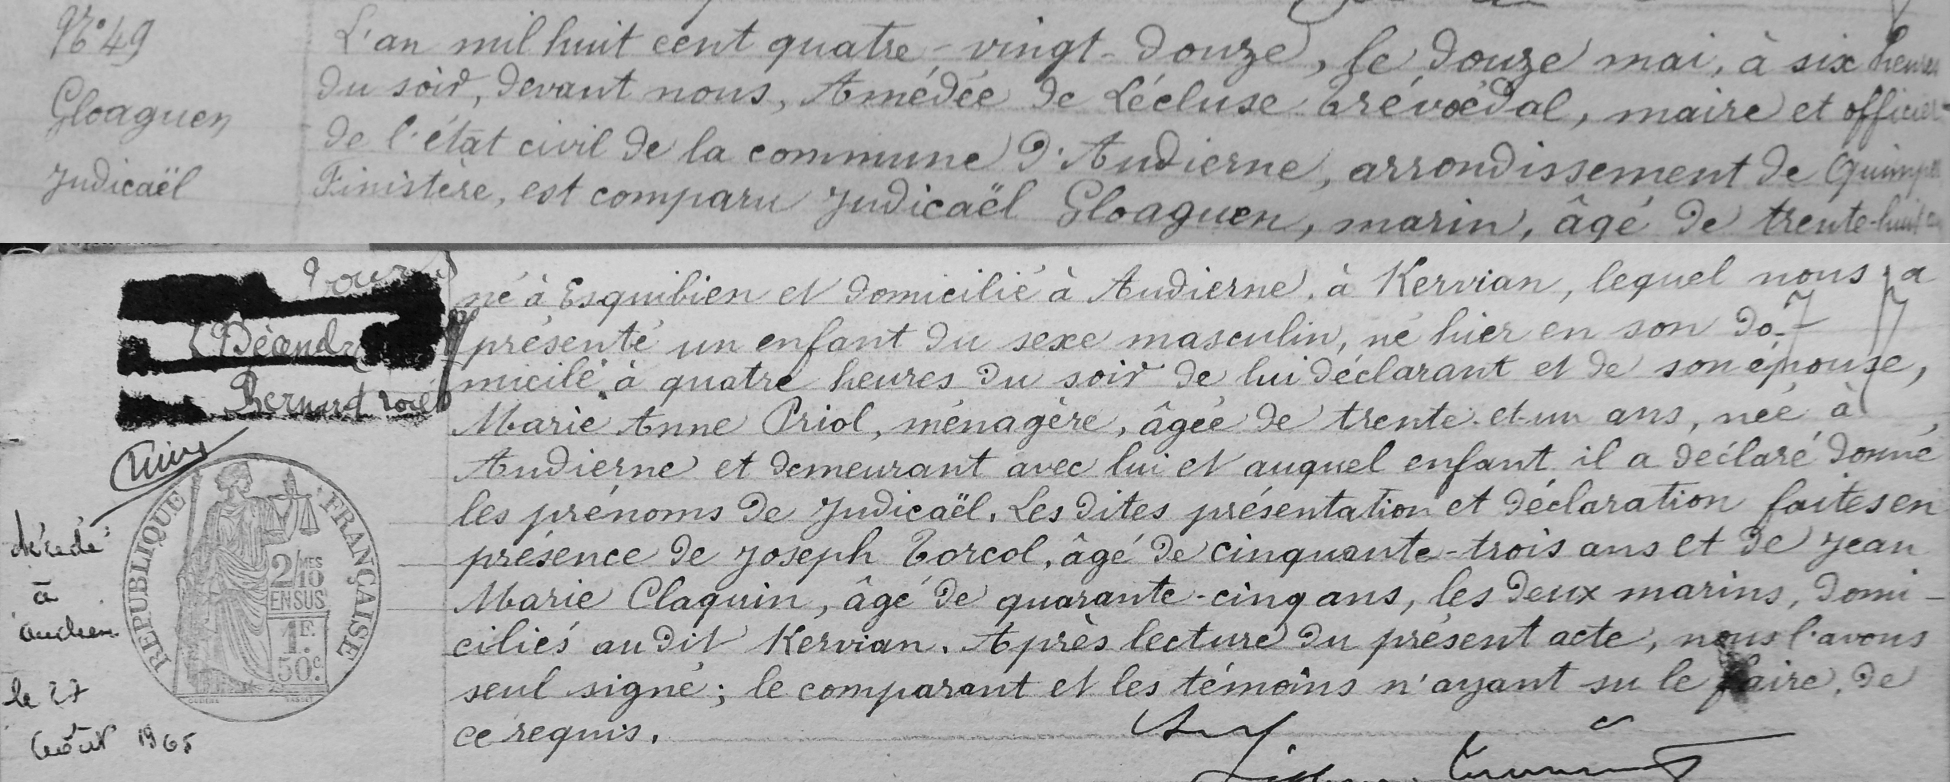 N° 49
Gloaguen
Judicaël
L'an mil huit cent quatre-vingt-douze, le douze mai, à six heures
du soir, devant nous, Amédée de Lécluse Trévoëdal, maire et officier
de l'état civil de la commune d'Audierne, arrondissement de Quimper
Finistère, est comparu Judicaël Gloaguen, marin, âgé de trente-huit
né à Esquibien et domicilié à Audierne, à Kervian, lequel nous a
présenté un enfant du sexe masculin, né hier en son do-
micile à quatre heures du soir de lui déclarant et de son épouse,
Marie Anne Priol, ménagère, âgée de trente-et-un ans, née à
Audierne et demeurant avec lui et auquel enfant il a déclaré donné
les prénoms de Judicaël. Les dites présentation et déclaration faites en
présence de Joseph Torcol, âgé de cinquante-trois ans et de Jean
Marie Claquin, âgé de quarante-cinq ans, les deux marins, domi-
ciliés audit Kervian. Après lecture du présent acte, nous l'avons
seul signé; le comparant et les témoins n'ayant su le faire, de
ce requis.
Bernard
RÉPUBLIQUE FRANÇAISE
2/10MES
EN SUS
1F.
50c.
décédé
à
le 27
août 1965